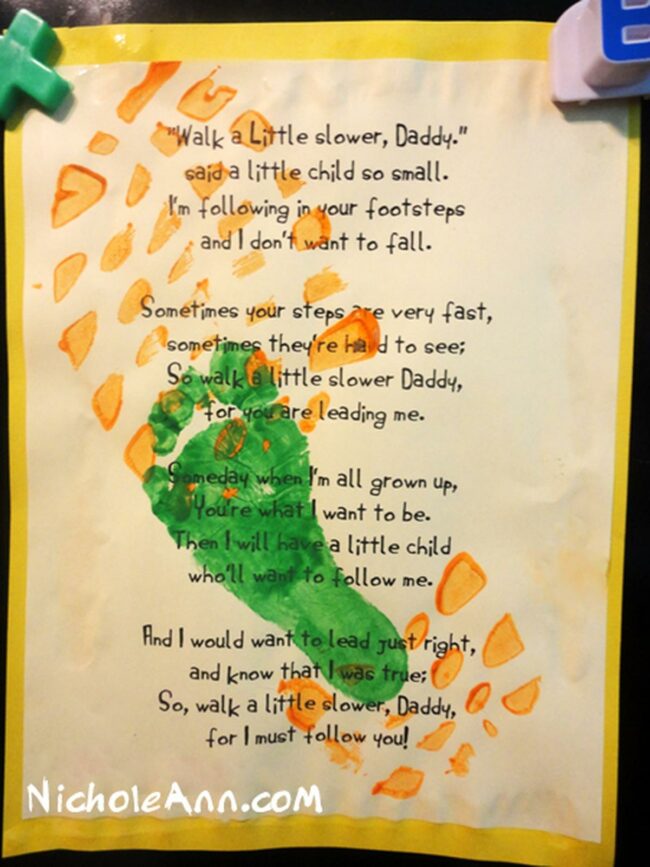 B
"Walk a Little slower, Daddy."
said a little child so small.
I'm following in your footsteps
and I don't want to fall.
Sometimes your steps are very fast,
sometimes they're hard to see;
So walk a little slower Daddy,
for you are leading me.
Someday when I'm all grown up,
You're what I want to be.
Then I will have a little child
who'll want to follow me.
And I would want to lead just right,
and know that I was true;
So, walk a little slower, Daddy,
for I must follow you!
NicholeAnn.com